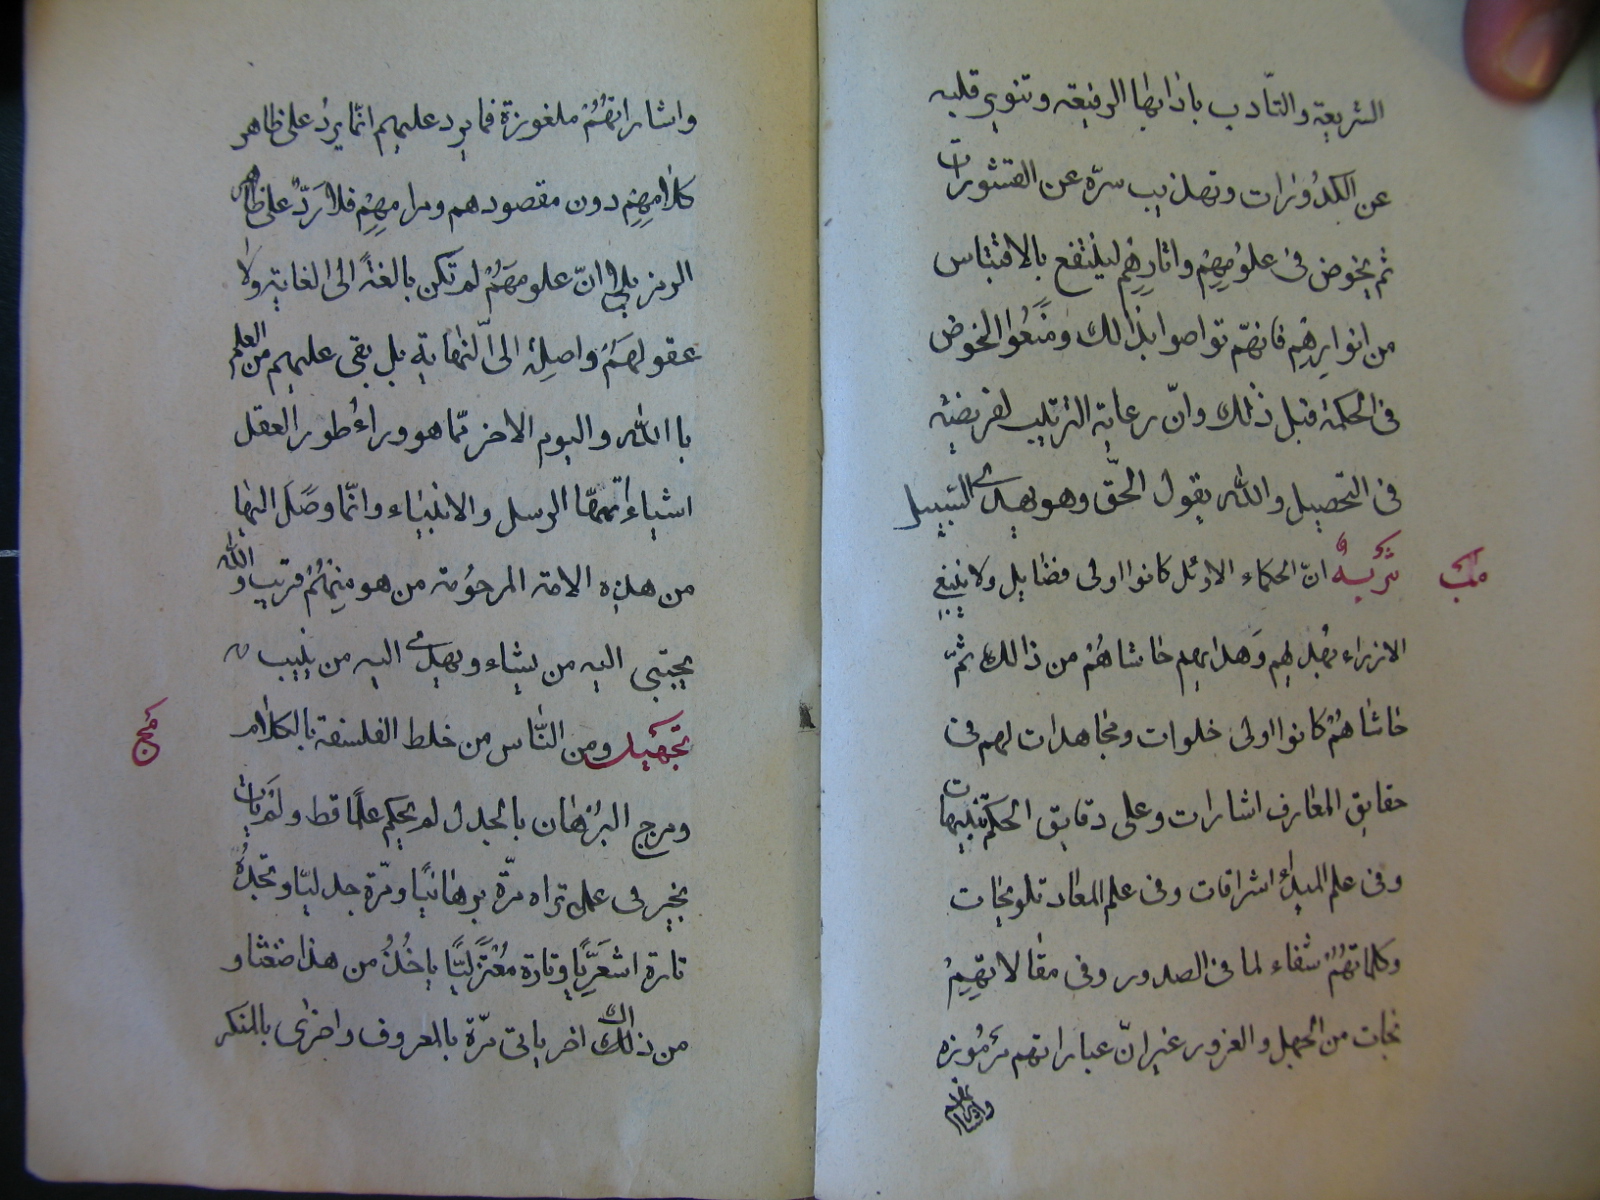 الشريعة والتأدب باذابها الرفيعة وتنوير قلبه
عن الكدورات وتهذيب سرّه عن القشورات
ثم يخوض فى علومهم واثارهم لينتفع بالاقتباس
من انوارهم فانهم تواصوا بذالك ومنعوا الخوض
فى الحكمة قبل ذلك وانّ رعاية الترتيب لفريضة
فى التحصيل والله يقول الحقّ وهو يهدى السبيل
مب
تزكية انّ الحكماء الاوئل كانوا اولى فضايل ولا ينبغى
الازراء بهم وهداهم خاشاهم من ذالك ثمّ
خاشاهم كانوا اولى خلوات ومجاهدات لهم فى
حقايق المعارف اشارات وعلى دقايق الحكم تنبيهات
وفى علم المبدء اشراقات وفى علم المعاد تلويحات
وكلماتهم شفاء لما فى الصدور وفى مقالاتهم
نجات من الجهل والغرور غير انّ عباراتهم مرموزة
واشاراتهم
واشاراتهم ملغوزة فما يرد عليهم انّما يرد على ظاهر
كلامهم دون مقصودهم ومرامهم فلا ردّ على ظاهر
الرمز بلى انّ علومهم لم تكن بالغة الى الغاية ولا
عقولهم واصلة الى النهاية بل بقى عليهم من العلم
باالله واليوم الاخر ممّا هو وراء طور العقل
اشياء تممها الرسل والانبياء وانّما وصل اليها
من هذه الامة المرحومة من هو منهم قريب والله
يجتبى اليه من يشاء ويهدى اليه من ينيب
مج
تجهيل ومن النّاس من خلط الفلسفة بالكلام
ومزج البرهان بالجدل لم يحكم علما قط ولم يات
بخير فى عمل تراه مرّة برهانيّا ومرّة جدليّا وتجده
تارة اشعريّا وتارة معتزليّا ياخذ من هذا ضغثا و
من ذالك اخر ياتى مرّة بالمعروف واخرى بالمنكر